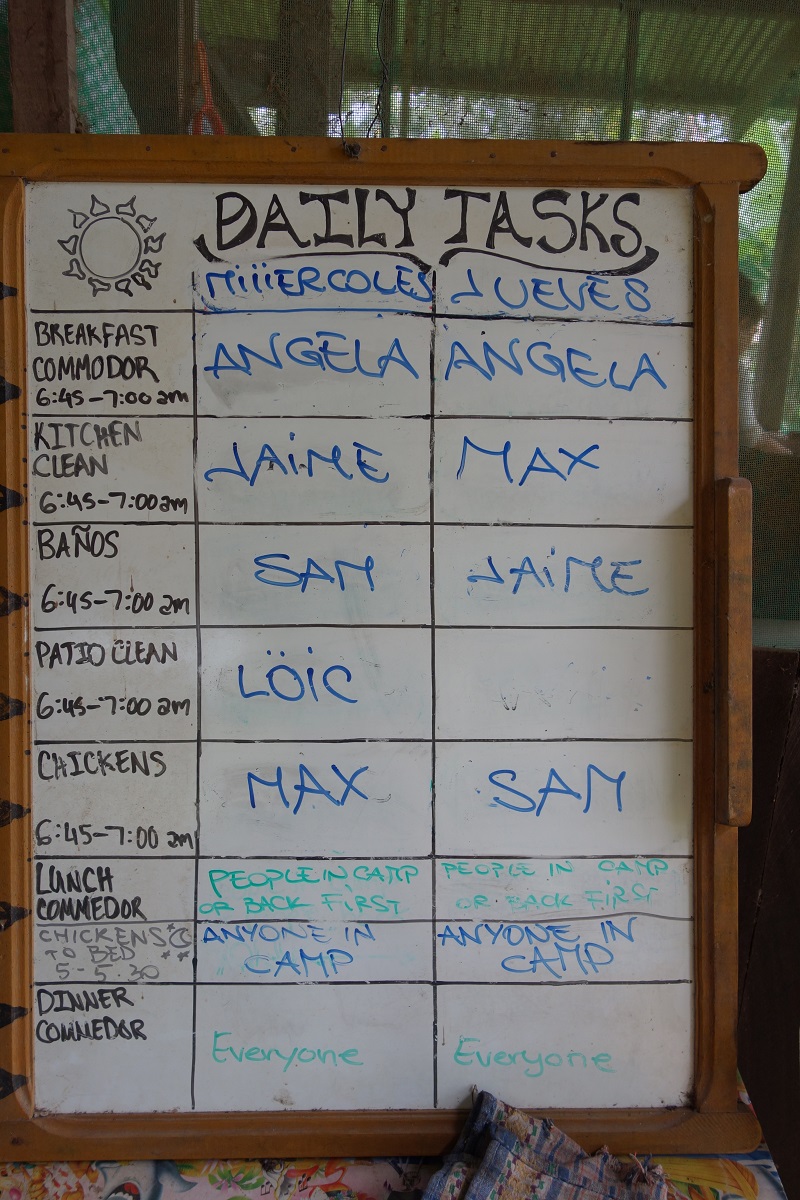 DAILY TASKS
MiiiERCOLES JUEVES
BREAKFAST
COMMODOR
6:45-7:00am
ANGELA ANGELA
KITCHEN
CLEAN
6:45-7:00am
JAiME MAX
BAÑOS
6:45-7:00am
SAM JAiME
PATIO CLEAN
6:45-7:00am
LÖiC
CHICKENS
6:45-7:00am
MAX SAM
LUNCH
COMMEDOR
PEOPLE IN CAMP
OR BACK FiRST
PEOPLE IN CAMP
OR BACK FiRST
CHICKENS
TO BED
5-5.30
ANYONE IN
CAMP
ANYONE IN
CAMP
DINNER
COMMEDOR
Everyone Everyone